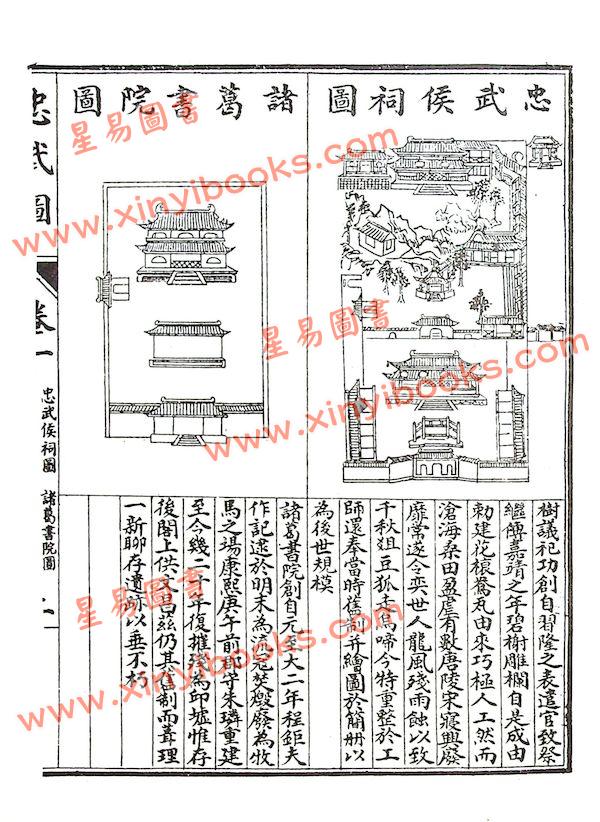 忠武侯祠圖
樹議祀功創自習隆之表遣官致祭
繼傳嘉靖之年碧榭雕欄自是成由
勅建花榱鴛瓦由來巧極人工然而
滄海桑田盈虛有數唐陵宋寢興廢
靡常遂令奕世人龍風殘雨蝕以致
千秋俎豆狐走鳥啼今特重整於工
師還奉當時舊制并繪圖於簡册以
為後世規模
諸葛書院圖
諸葛書院創自元至大二年程鉅夫
作記逮於明末為流寇焚燬廢為牧
馬之場康熙庚午前郡守朱璘重建
至今幾二十年復摧殘為邱墟惟存
後閣上供文昌茲仍其舊制而葺理
一新聊存遺以垂不朽
忠武圖 卷一 忠武侯祠圖 諸葛書院圖 一
星易圖書
www.xinyibooks.com
星易圖書
www.xinyibooks.com
星易圖書
www.xinyibooks.com